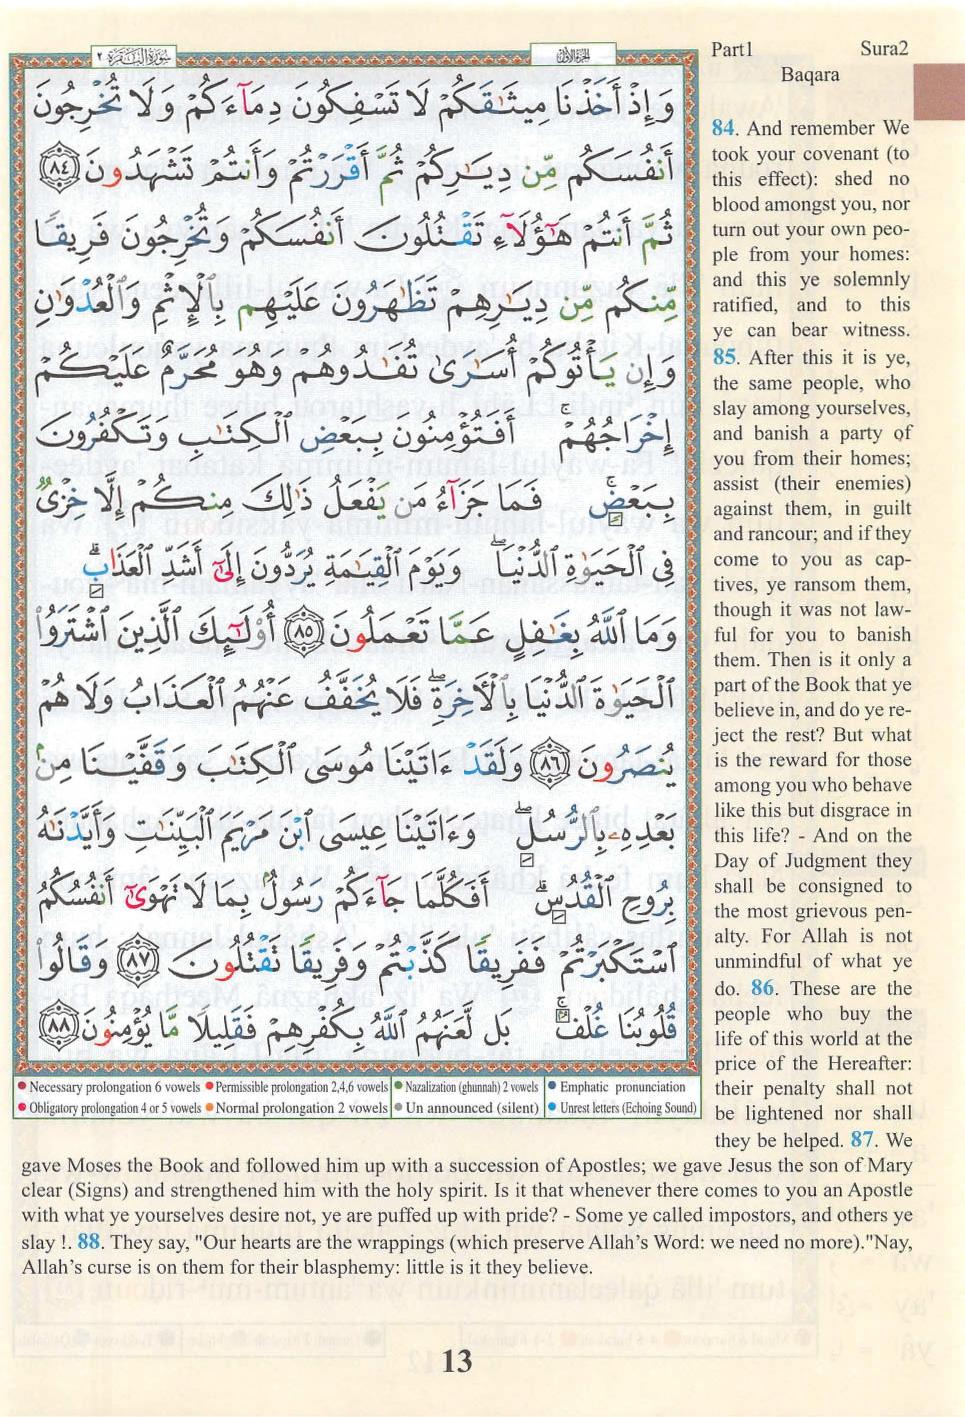 Part1 Sura2
Baqara
سُورَةُ البَقَرَةِ ٢
الجزء الأول
وَإِذْ أَخَذْنَا مِيثَٰقَكُمْ لَا تَسْفِكُونَ دِمَآءَكُمْ وَلَا تُخْرِجُونَ
أَنفُسَكُم مِّن دِيَٰرِكُمْ ثُمَّ أَقْرَرْتُمْ وَأَنتُمْ تَشْهَدُونَ ٨٤
ثُمَّ أَنتُمْ هَٰٓؤُلَآءِ تَقْتُلُونَ أَنفُسَكُمْ وَتُخْرِجُونَ فَرِيقًا
مِّنكُم مِّن دِيَٰرِهِمْ تَظَٰهَرُونَ عَلَيْهِم بِٱلْإِثْمِ وَٱلْعُدْوَٰنِ
وَإِن يَأْتُوكُمْ أُسَٰرَىٰ تُفَٰدُوهُمْ وَهُوَ مُحَرَّمٌ عَلَيْكُمْ
إِخْرَاجُهُمْ ۚ أَفَتُؤْمِنُونَ بِبَعْضِ ٱلْكِتَٰبِ وَتَكْفُرُونَ
بِبَعْضٍ ۚ فَمَا جَزَآءُ مَن يَفْعَلُ ذَٰلِكَ مِنكُمْ إِلَّا خِزْىٌ
فِى ٱلْحَيَوٰةِ ٱلدُّنْيَا ۖ وَيَوْمَ ٱلْقِيَٰمَةِ يُرَدُّونَ إِلَىٰٓ أَشَدِّ ٱلْعَذَابِ ۗ
وَمَا ٱللَّهُ بِغَٰفِلٍ عَمَّا تَعْمَلُونَ ٨٥ أُو۟لَٰٓئِكَ ٱلَّذِينَ ٱشْتَرَوُا۟
ٱلْحَيَوٰةَ ٱلدُّنْيَا بِٱلْءَاخِرَةِ ۖ فَلَا يُخَفَّفُ عَنْهُمُ ٱلْعَذَابُ وَلَا هُمْ
يُنصَرُونَ ٨٦ وَلَقَدْ ءَاتَيْنَا مُوسَى ٱلْكِتَٰبَ وَقَفَّيْنَا مِنۢ
بَعْدِهِۦ بِٱلرُّسُلِ ۖ وَءَاتَيْنَا عِيسَى ٱبْنَ مَرْيَمَ ٱلْبَيِّنَٰتِ وَأَيَّدْنَٰهُ
بِرُوحِ ٱلْقُدُسِ ۗ أَفَكُلَّمَا جَآءَكُمْ رَسُولٌۢ بِمَا لَا تَهْوَىٰٓ أَنفُسُكُمُ
ٱسْتَكْبَرْتُمْ فَفَرِيقًا كَذَّبْتُمْ وَفَرِيقًا تَقْتُلُونَ ٨٧ وَقَالُوا۟
قُلُوبُنَا غُلْفٌۢ ۚ بَل لَّعَنَهُمُ ٱللَّهُ بِكُفْرِهِمْ فَقَلِيلًا مَّا يُؤْمِنُونَ ٨٨
Necessary prolongation 6 vowels Permissible prolongation 2,4,6 vowels Nazalization (ghunnah) 2 vowels Emphatic pronunciation
Obligatory prolongation 4 or 5 vowels Normal prolongation 2 vowels Un announced (silent) Unrest letters (Echoing Sound)
84. And remember We
took your covenant (to
this effect): shed no
blood amongst you, nor
turn out your own peo-
ple from your homes:
and this ye solemnly
ratified, and to this
ye can bear witness.
85. After this it is ye,
the same people, who
slay among yourselves,
and banish a party of
you from their homes;
assist (their enemies)
against them, in guilt
and rancour; and if they
come to you as cap-
tives, ye ransom them,
though it was not law-
ful for you to banish
them. Then is it only a
part of the Book that ye
believe in, and do ye re-
ject the rest? But what
is the reward for those
among you who behave
like this but disgrace in
this life? - And on the
Day of Judgment they
shall be consigned to
the most grievous pen-
alty. For Allah is not
unmindful of what ye
do. 86. These are the
people who buy the
life of this world at the
price of the Hereafter:
their penalty shall not
be lightened nor shall
they be helped. 87. We
gave Moses the Book and followed him up with a succession of Apostles; we gave Jesus the son of Mary
clear (Signs) and strengthened him with the holy spirit. Is it that whenever there comes to you an Apostle
with what ye yourselves desire not, ye are puffed up with pride? - Some ye called impostors, and others ye
slay !. 88. They say, "Our hearts are the wrappings (which preserve Allah's Word: we need no more)."Nay,
Allah's curse is on them for their blasphemy: little is it they believe.
13